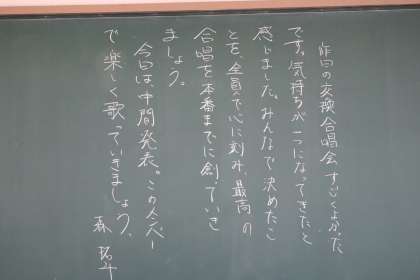 昨日の交換合唱会すごくよかった
です。気持ちが一つになってきたと
感じました。みんなで決めたこ
とを、全員で心に刻み、最高の
合唱を本番までに創っていき
ましょう。
今日は、中間発表。このメンバー
で楽しく歌っていきましょう。
森 拓斗